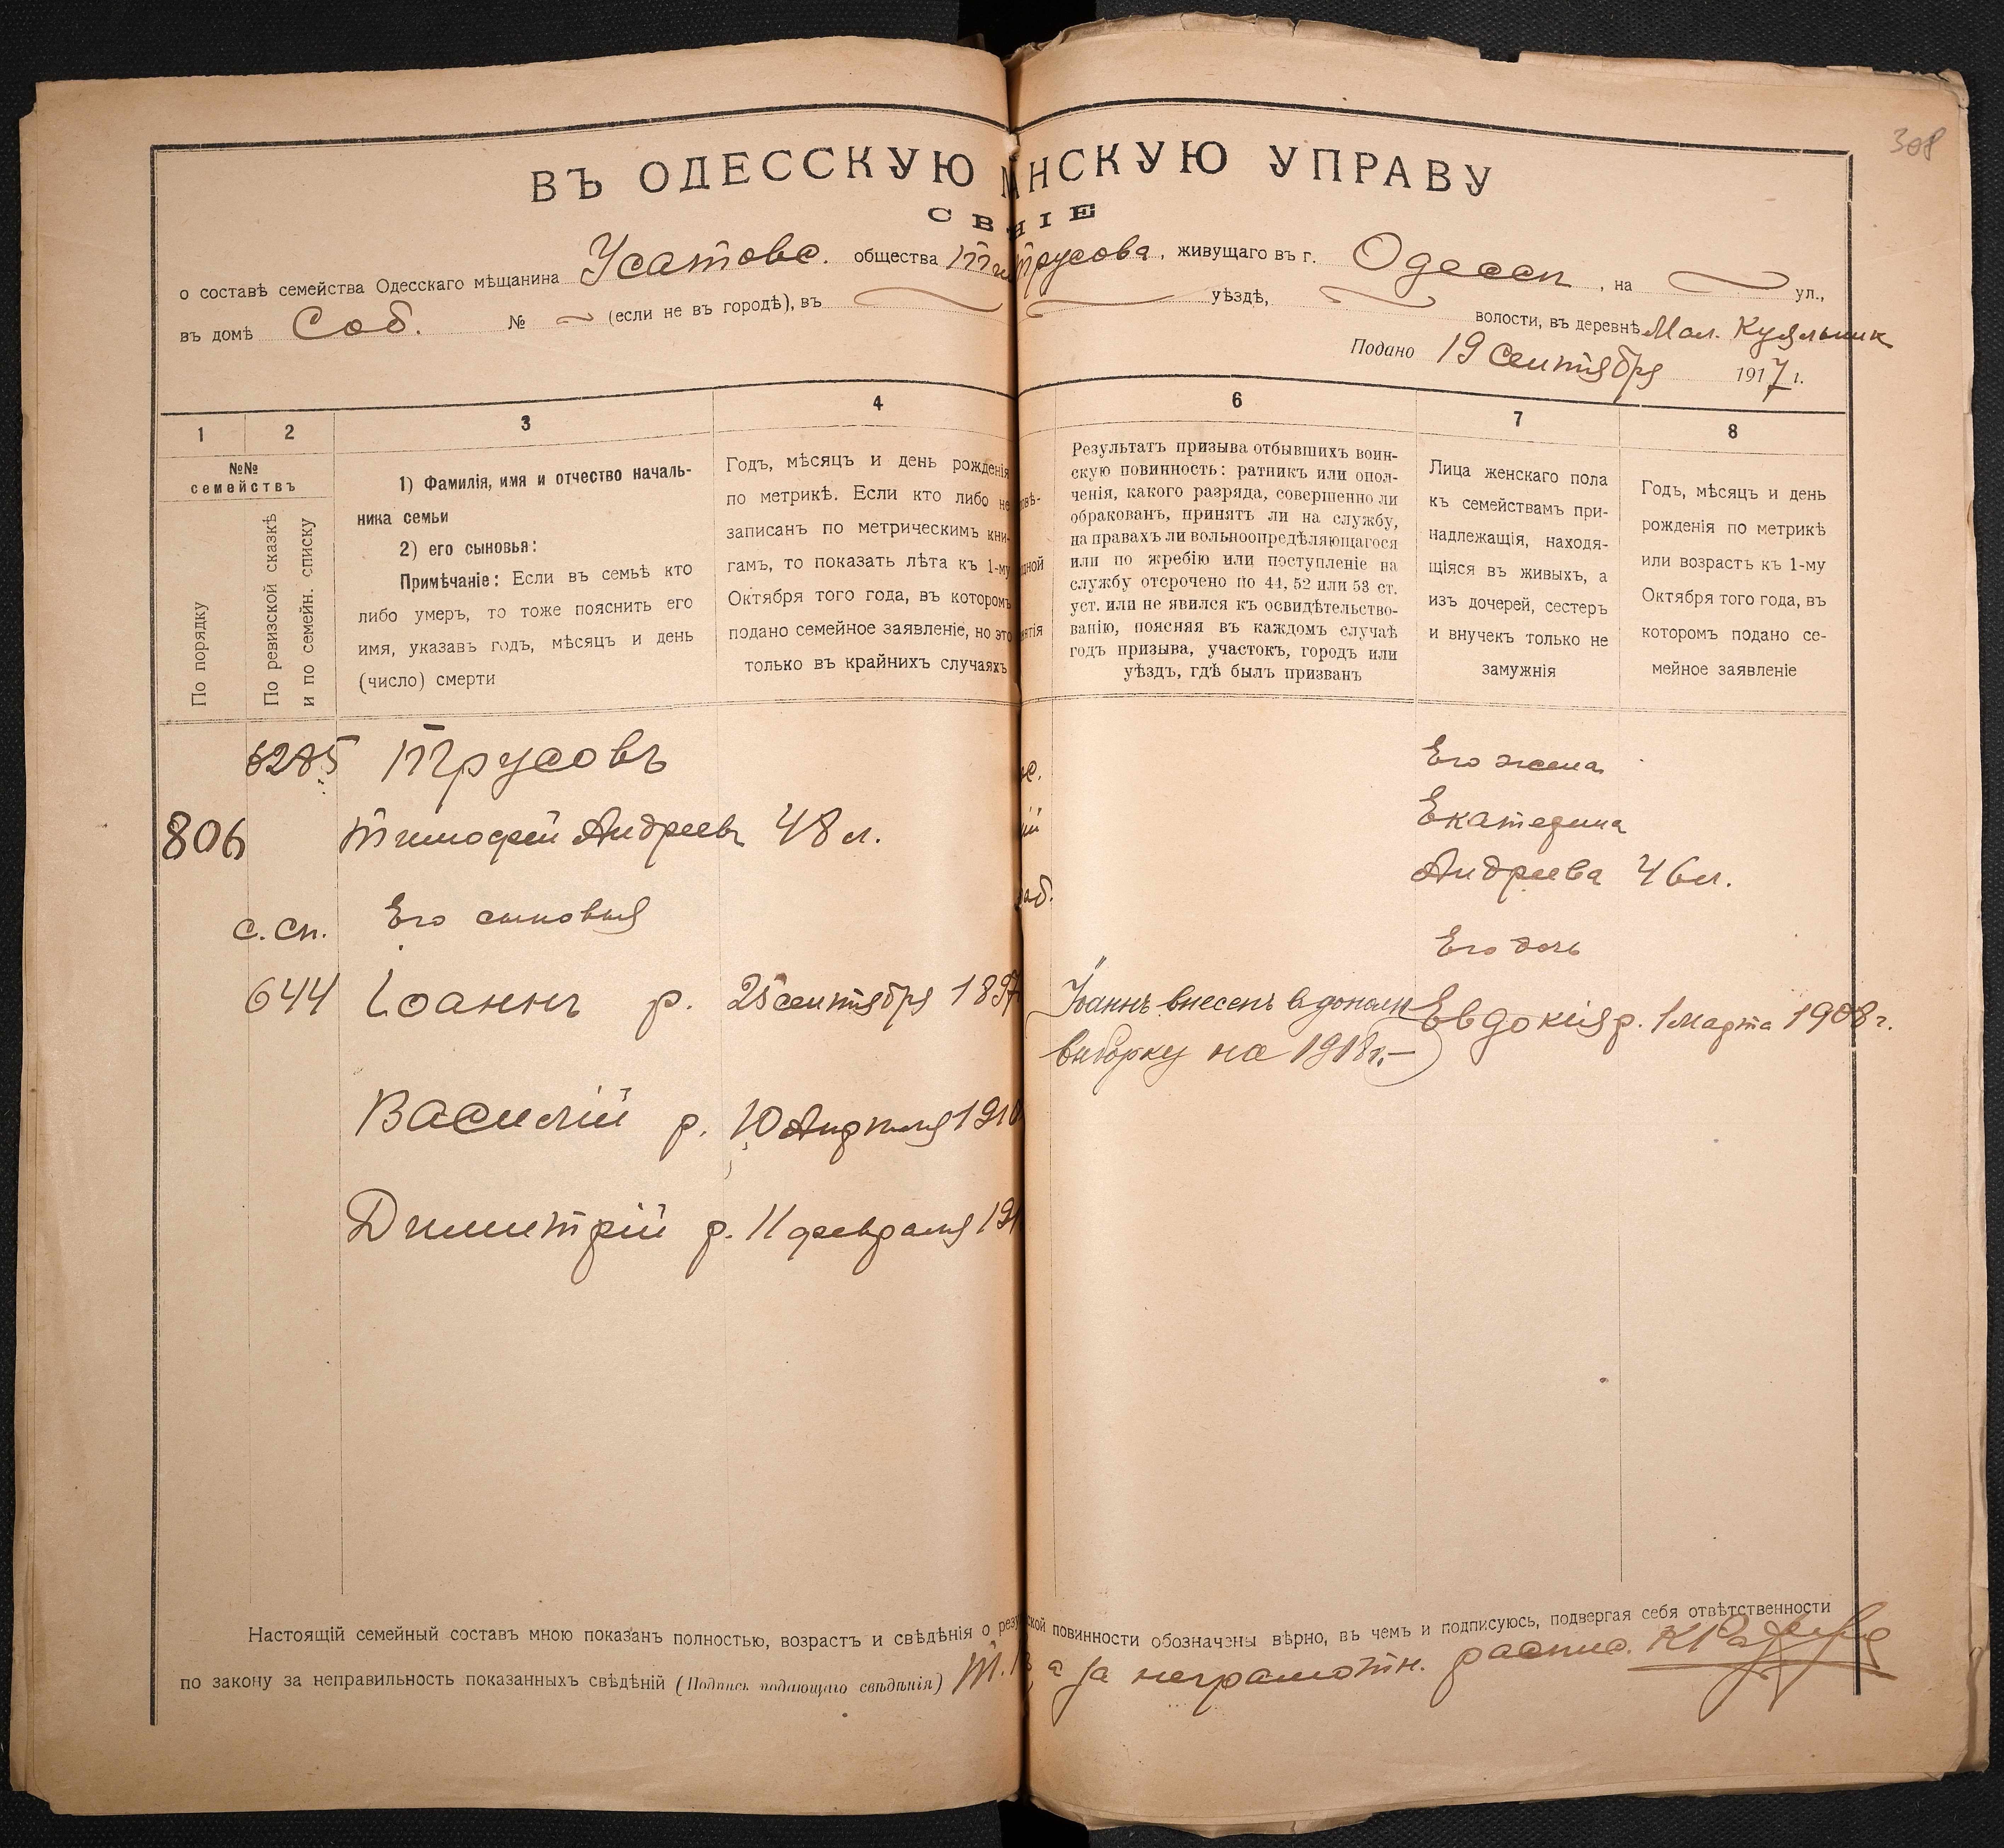 308
ВЪ ОДЕССКУЮ НСКУЮ УПРАВУ
СВ НІЕ
о составѣ семейства Одесскаго мѣщанина Усатовс. общества трусова, живущаго въ г. Одессп, на ул.,
въ домѣ Соб. № (если не въ городѣ), въ уѣздѣ, волости, въ деревнѣ Мал. Куяльник
Подано 19 сентября 1917 г.
1
2
3
4
6
7
8
№№
семействъ
По порядку
По ревизской сказкѣ
и по семейн. списку
1) Фамилія, имя и отчество началь-
ника семьи
2) его сыновья:
Примѣчаніе: Если въ семьѣ кто
либо умеръ, то тоже пояснить его
имя, указавъ годъ, мѣсяцъ и день
(число) смерти
Годъ, мѣсяцъ и день рожденія
по метрикѣ. Если кто либо не
записанъ по метрическимъ кни-
гамъ, то показать лѣта къ 1-му
Октября того года, въ которомъ
подано семейное заявленіе, но это
только въ крайнихъ случаяхъ
Результатъ призыва отбывшихъ воин-
скую повинность: ратникъ или опол-
ченія, какого разряда, совершенно ли
обракованъ, принятъ ли на службу,
на правахъ ли вольноопредѣляющагося
или по жребію или поступленіе на
службу отсрочено по 44, 52 или 53 ст.
уст. или не явился къ освидѣтельство-
ванію, поясняя въ каждомъ случаѣ
годъ призыва, участокъ, городъ или
уѣздъ, гдѣ былъ призванъ
Лица женскаго пола
къ семействамъ при-
надлежащія, находя-
щіяся въ живыхъ, а
изъ дочерей, сестеръ
и внучекъ только не
замужнія
Годъ, мѣсяцъ и день
рожденія по метрикѣ
или возрастъ къ 1-му
Октября того года, въ
которомъ подано се-
мейное заявленіе
Трусовъ
Его жена
806 Тимофей Андреевъ 48 л.
Екатерина
Андреева 46 л.
с. сп. Его сыновья
Его дочь
644 Іоаннъ р. 25 сентября 1897
Іоаннъ внесенъ в дополн
Евдокія р. 1 марта 1908 г.
выборку на 1918 г.—
Василій р. 10 Апреля 1910
Димитрій р. 11 февраля 191
Настоящій семейный составъ мною показанъ полностью, возрастъ и свѣдѣнія о резу ской повинности обозначены вѣрно, въ чемъ и подписуюсь, подвергая себя отвѣтственности
по закону за неправильность показанныхъ свѣдѣній (Подпись подающаго свѣдѣнія) Т. а за неграмотн. распис.